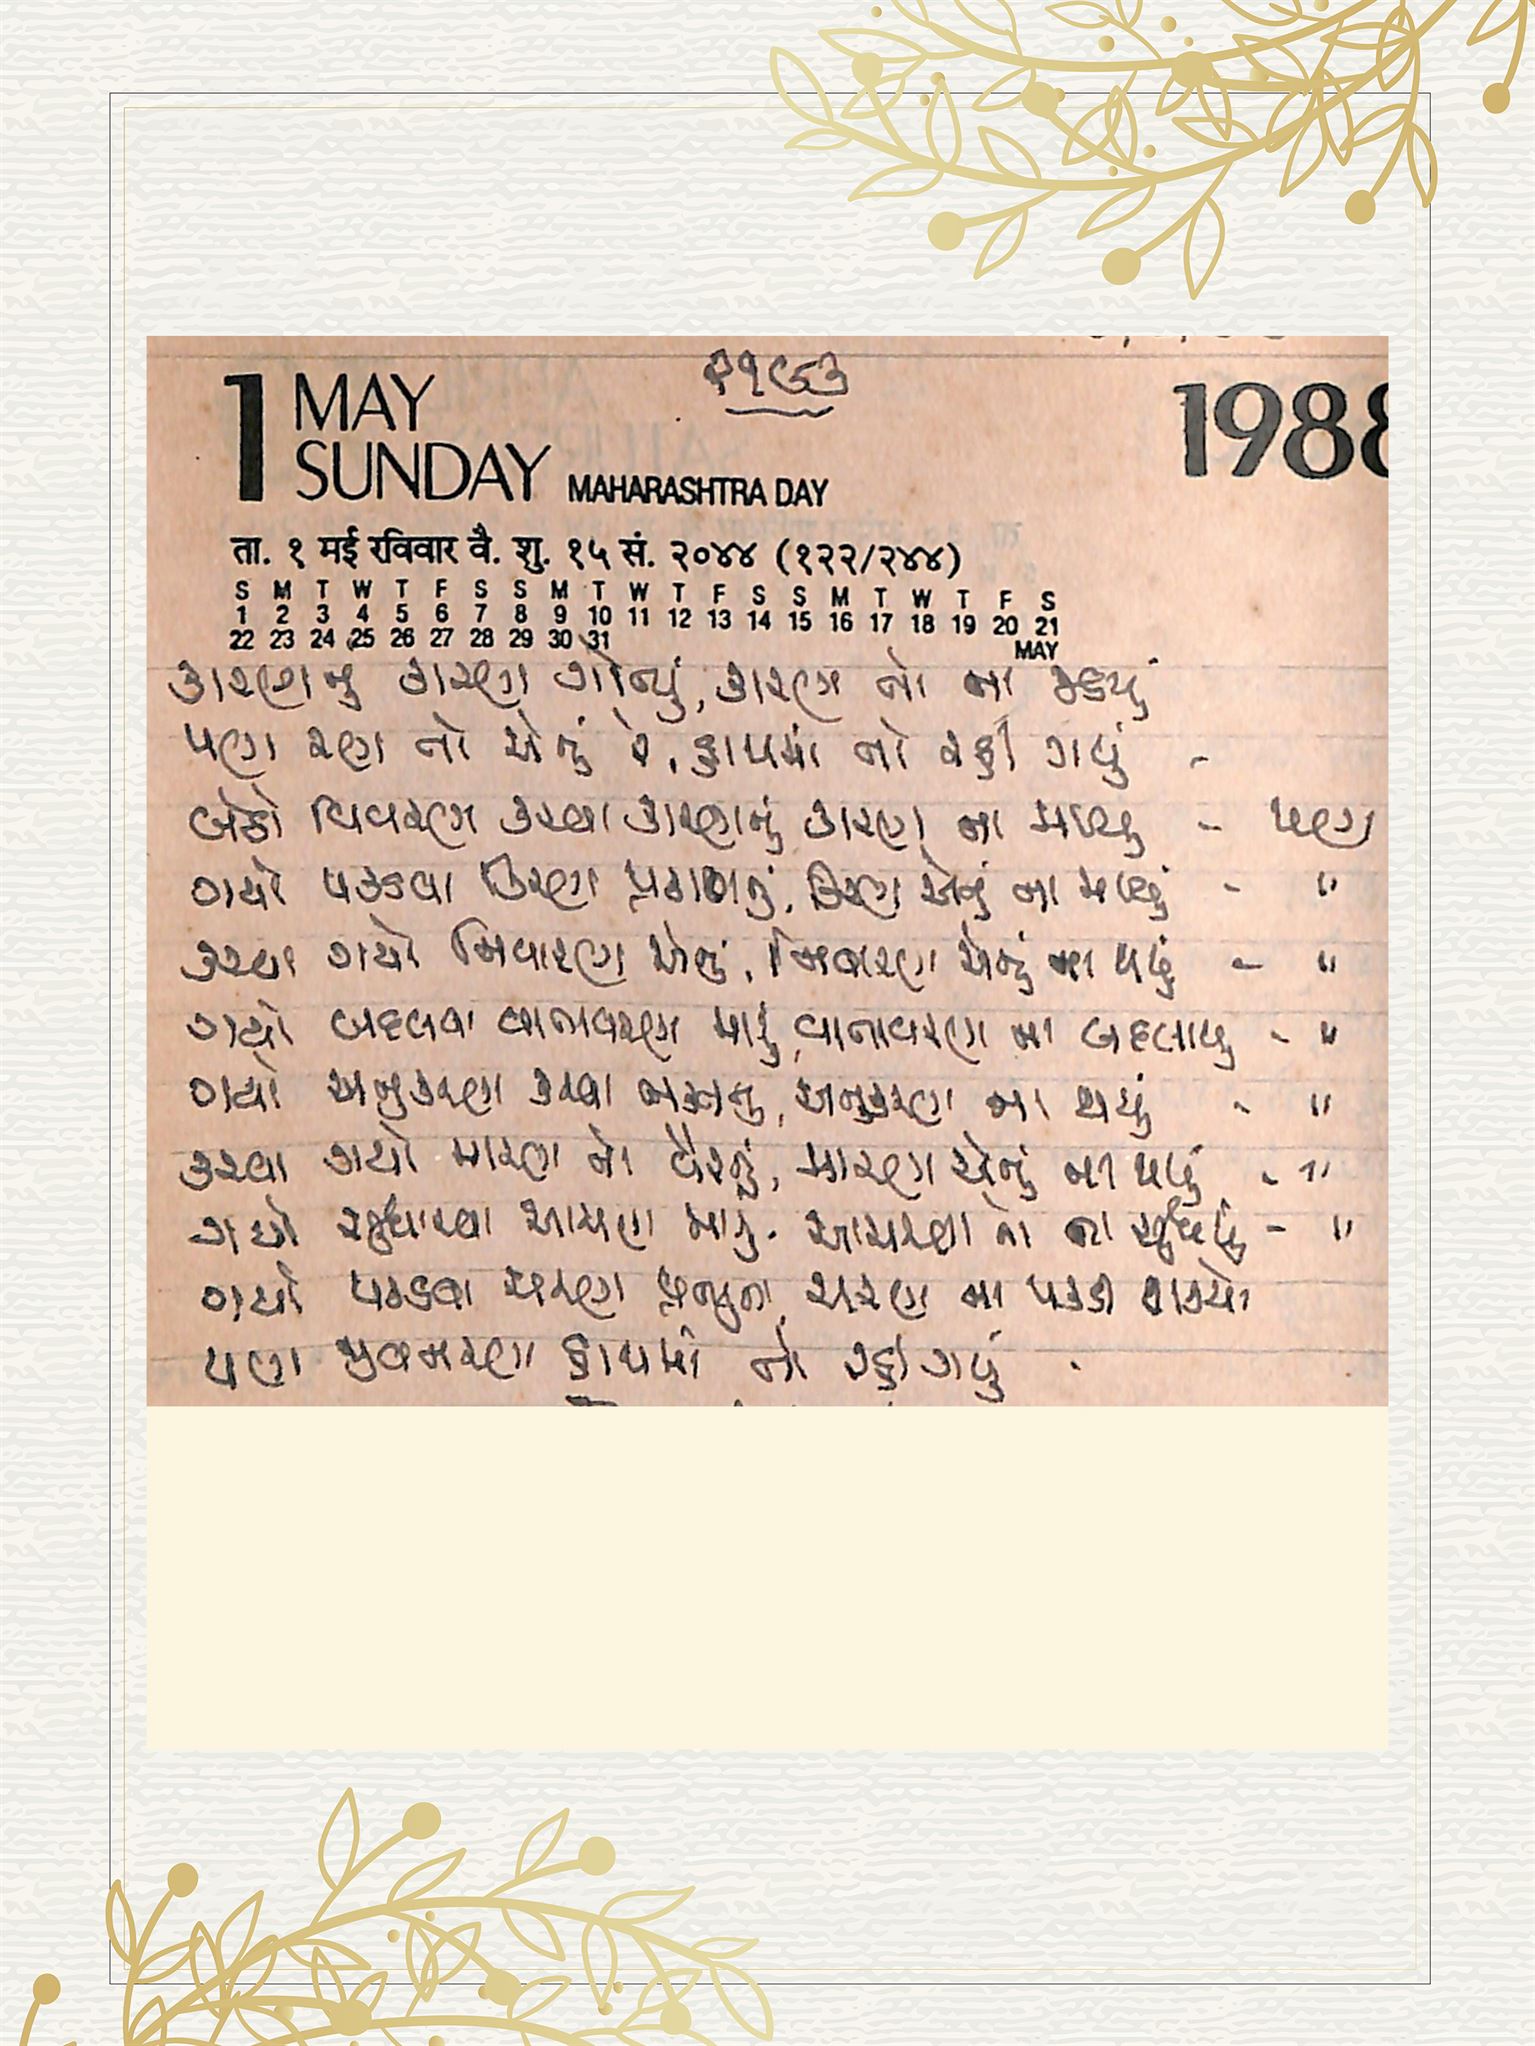 ૨૧૯૩
1 MAY
SUNDAY MAHARASHTRA DAY
1988
ता. १ मई रविवार वै. शु. १५ सं. २०४४ (१२२/२४४)
S M T W T F S S M T W T F S S M T W T F S
1 2 3 4 5 6 7 8 9 10 11 12 13 14 15 16 17 18 19 20 21
22 23 24 25 26 27 28 29 30 31
MAY
કારણનુ કારણ ગોત્યું, કારણ તો ના જડયું
પણ રણ તો એનું રે, હાથમાં તો રહી ગયું -
બેઠો વિવરણ કરવા કારણનું કારણ ના મળ્યુ - પણ
ગયો પકડવા કિરણ પ્રકાશનું, કિરણ એનું ના મળ્યું - "
કરવા ગયો નિવારણ એનું, નિવારણ એનું ના થયું - "
ગયો બદલવા વાતાવરણ મારું, વાતાવરણ ના બદલાયુ - "
ગયો અનુકરણ કરવા ભક્તનુ, અનુકરણ ના થયું - "
કરવા ગયો મારણ તો વૈરનું, મારણ એનું ના થયું - "
ગયો સુધારવા આચરણ મારું. આચરણ તો ના સુધર્યું - "
ગયો પકડવા ચરણ પ્રભુના, ચરણ ના પકડી શક્યો
પણ સ્મરણ હાથમાં તો રહી ગયું .